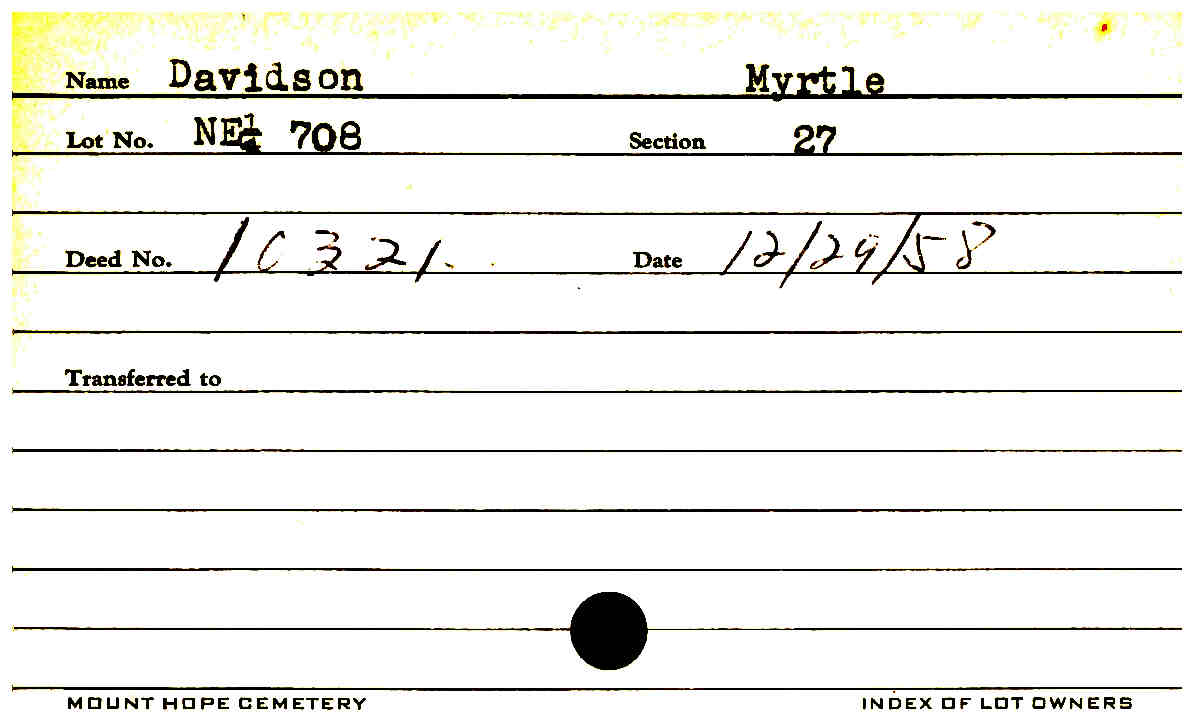 Name Davidson Myrtle
Lot No. NE¼ 708 Section 27
Deed No. 10321. Date 12/29/58
Transferred to
MOUNT HOPE CEMETERY INDEX OF LOT OWNERS